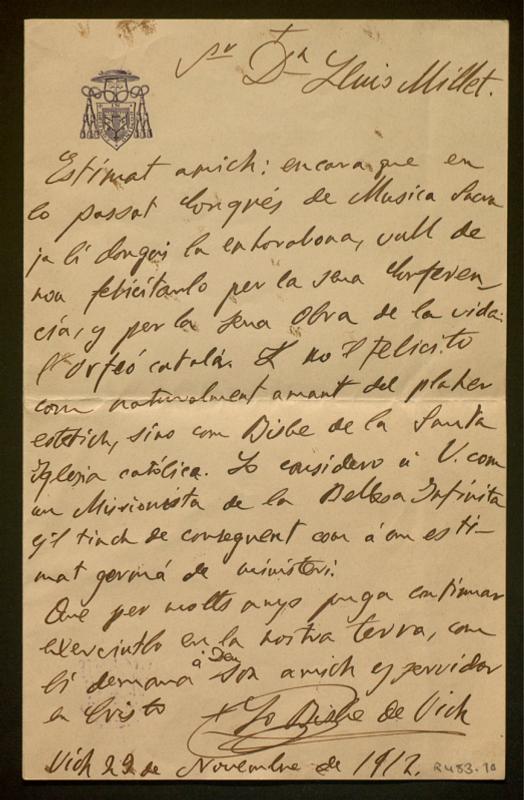 Sr Dn Lluis Millet.
Estimat amich: encara que en
lo passat Congrés de Musica Sacra
ja li donguí la enhorabona, vull de
nou felicitarlo per la seua Conferen-
cia, y per la seua Obra de la vida:
l'Orfeó catalá. Y no 'l felicito
com naturalment amant del plaher
estétich, sino com Bisbe de la Santa
Iglesia católica. Jo considero á V. com
un Missionista de la Bellesa Infinita
y 'l tinch de conseguent com á un esti-
mat germá de ministeri.
Que per molts anys puga continuar
exercintlo en la nostra terra, com
li demana á Deu son amich y servidor
en Cristo + Lo Bisbe de Vich
Vich 22 de Novembre de 1912.
R483.10